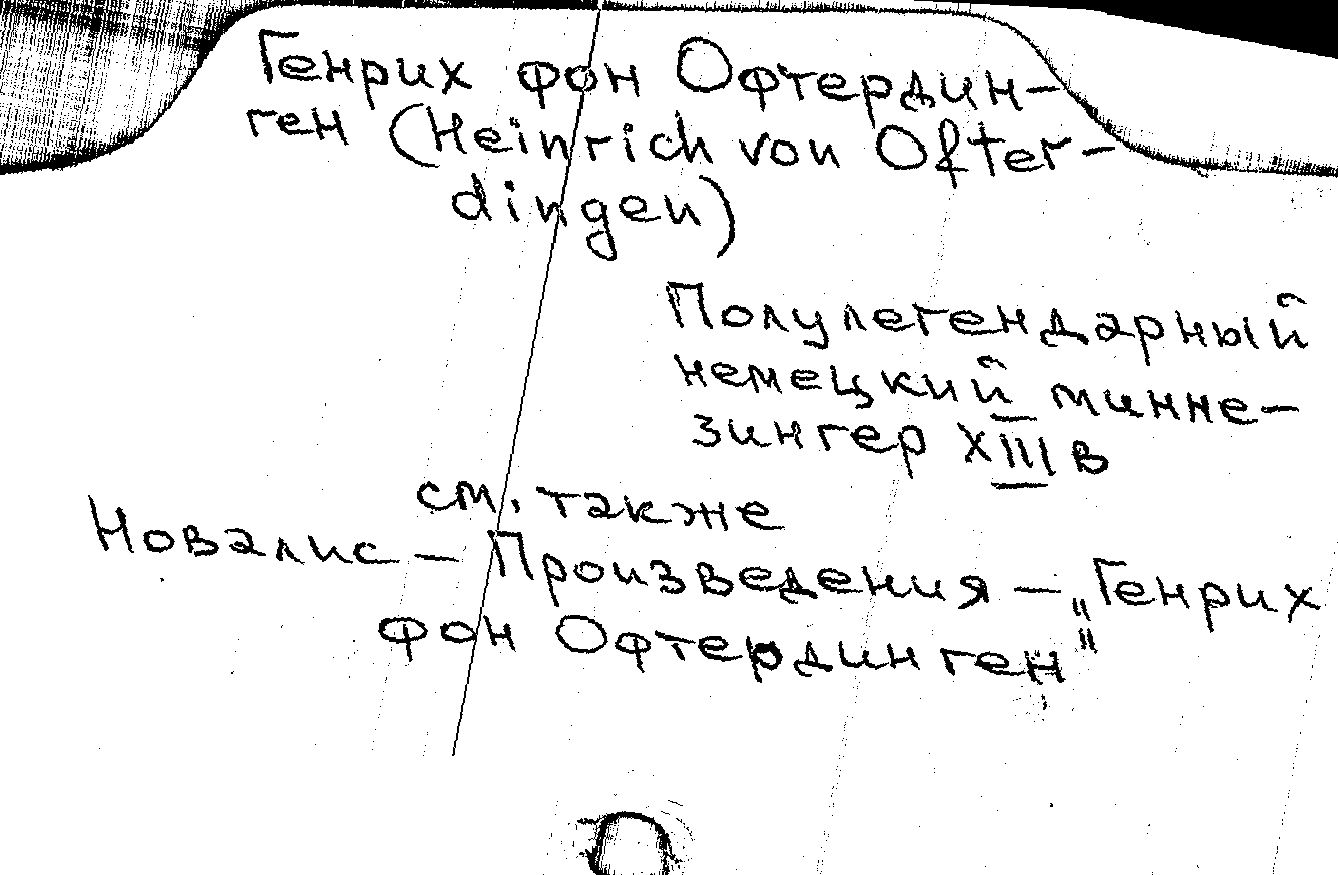 Генрих фон Офтердин-
ген (Heinrich von Ofter-
dingen)
Полулегендарный
немецкий минне-
зингер XIII в
см. также
Новалис — Произведения — „Генрих
фон Офтердинген"